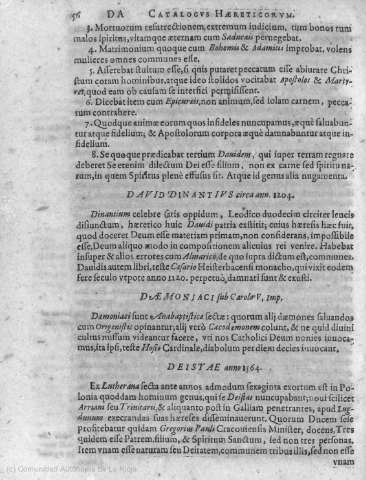 56 DA CATALOGVS HÆRETICORVM.
3. Mortuorum resurrectionem, extremum iudicium, tum bonos tum
malos spiritus, vitamque æternam cum Saducæis pernegebat.
4. Matrimonium quoque cum Bohemis & Adamitis improbat, volens
mulieres omnes communes esse.
5. Asserebat stultum esse, si quis putaret peccatum esse abiurare Chri-
stum coram hominibus, atque ideo stolidos vocitabat Apostolos & Marty-
res, quod eam ob causam se interfici permisissent.
6. Dicebat item cum Epicureis, non animum, sed solam carnem, pecca-
tum contrahere.
7. Quodque animæ eorum quos infideles nuncupamus, æquè saluaban-
tur atque fidelium, & Apostolorum corpora æquè damnabuntur atque in-
fidelium.
8. Se quoque prædicabat tertium Dauidem, qui super terram regnare
deberet Se etenim dilectum Dei esse filium, non ex carne sed spiritu na-
tum, in quem Spiritus plenè effusus sit. Atque id genus alia nugamenta.
DAVID DINANTIVS circa ann. 1204.
Dinantium celebre satis oppidum, Leodico duodecim circiter leucis
disiunctum, hæretico huic Dauidi patria extitit, cuius hæresis hæc fuit,
quod doceret Deum esse materiam primam, non considerans, impossibile
esse, Deum aliquo modo in compositionem alicuius rei venire. Habebat
insuper & alios errores cum Almarico, de quo supra dictum est, communes.
Dauidis autem libri, teste Cæsario Heisterbacensi monacho, qui vixit eodem
fere seculo vtpote anno 1220. perpetuò, damnati sunt & exusti.
DÆMONIACI sub Carolo V, Imp.
Dæmoniaci sunt Anabaptisticæ sectæ: quorum alij dæmones saluandos
cum Origenistis opinantur, alij verò Cacodæmonem colunt, & ne quid diuini
cultus missum videantur facere, vti nos Catholici Deum nomine iuuoca-
mus, ita ipsi, teste Hosio Cardinale, diabolum perdiem decies inuocant.
DEISTAE anno 1564.
Ex Lutherana secta ante annos admodum sexaginta exortum est in Po-
lonia quoddam hominum genus, qui se Deistas nuncupabant, noui scilicet
Arriani seu Trinitarij, & aliquanto post in Galliam penetrantes, apud Lug-
dunum execrandas suas hæreses disseminauerunt. Quorum Ducem sese
profitebatur quidam Gregorius Pauli Cracouiensis Minister, docens, Tres
quidem esse Patrem, filium, & Spiritum Sanctum, sed non tres personas.
Item vnam esse naturam seu Deitatem, communem tribus illis, sed non esse
vnam
(c) Comunidad Autónoma de La Rioja